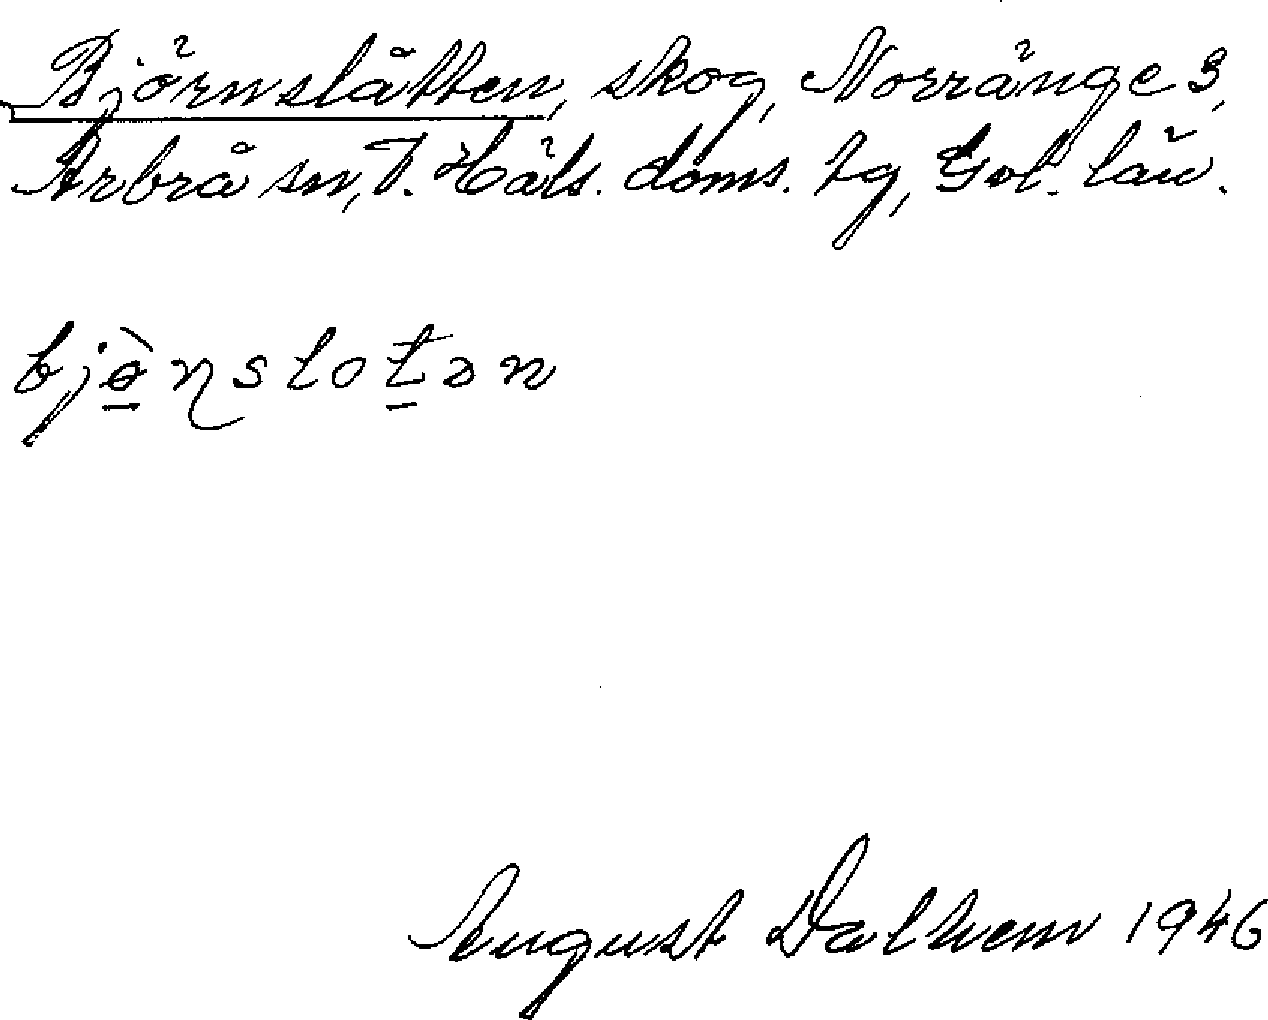 Björnslåtten, skog, Norränge 3,
Arbrå sn, V. Häls. doms. tg, Gvl. län.
bjø̱̀ɳsloṯən
August Dalhem 1946